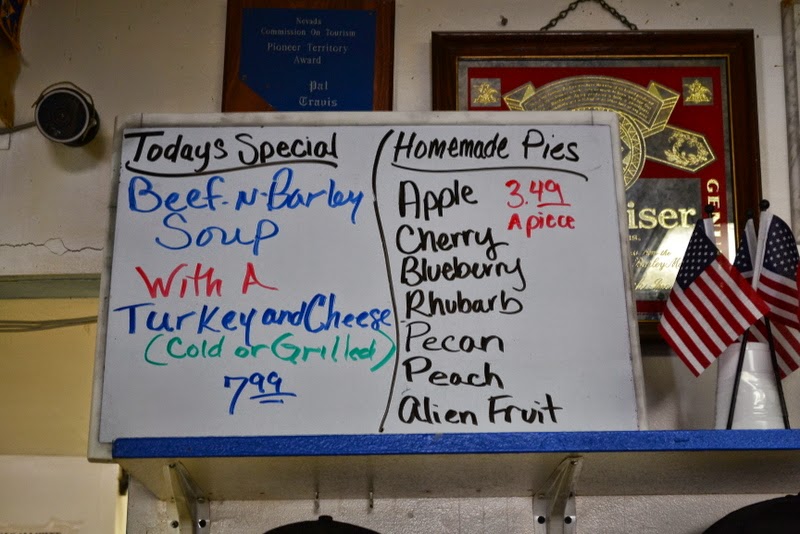 Nevada
Commission On Tourism
Pioneer Territory
Award
Pal
Travis
Todays Special
Beef-N-Barley
Soup
With A
Turkey and Cheese
(Cold or Grilled)
7.99
Homemade Pies
Apple 3.49
A piece
Cherry
Blueberry
Rhubarb
Pecan
Peach
Alien Fruit
iser
GENU